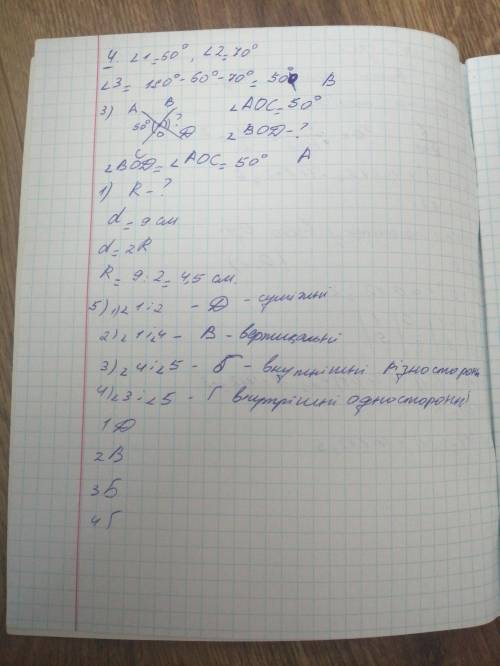 4. ∠1=60°, ∠2=70°
∠3= 180°-60°-70°= 50° В
3) А В ∠AOC=50°
50° O ? D ∠BOD-?
C
∠BOD=∠AOC=50° А
1) R-?
d=9 см
d=2R
R=9:2=4,5 см.
5) 1) ∠1 і 2 - Д - суміжні
2) ∠1 і ∠4 - В - вертикальні
3) ∠4 і ∠5 - Б - внутрішні різносторон
4) ∠3 і ∠5 - Г внутрішні односторонні
1Д
2В
3Б
4Г